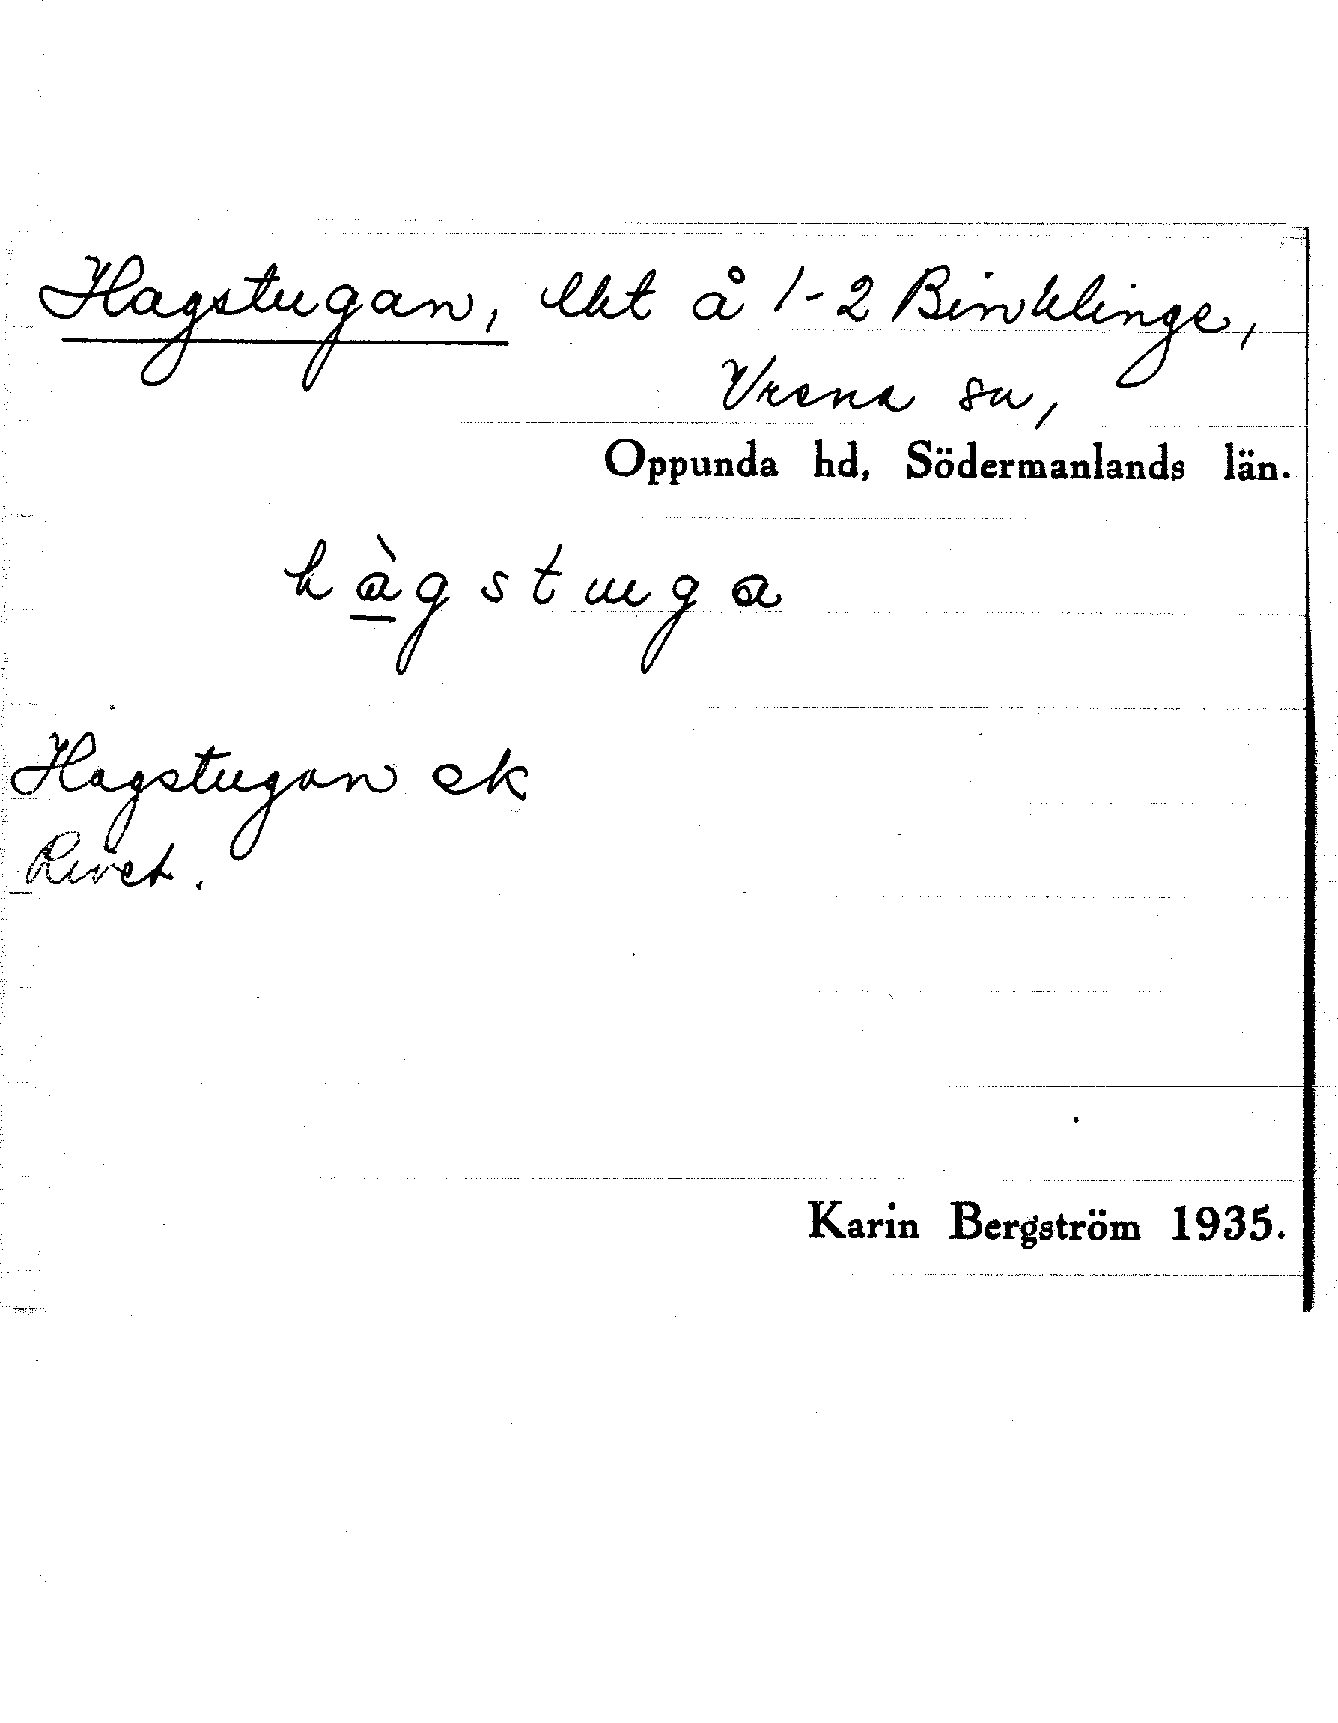 Hagstugan, lht å 1-2 Binklinge,
Vrena sn,
Oppunda hd, Södermanlands län.
hàgstuga
Hagstugan ek
Rivet.
Karin Bergström 1935.